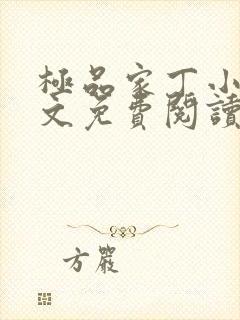 極品家丁小
文免費閱讀
方嚴